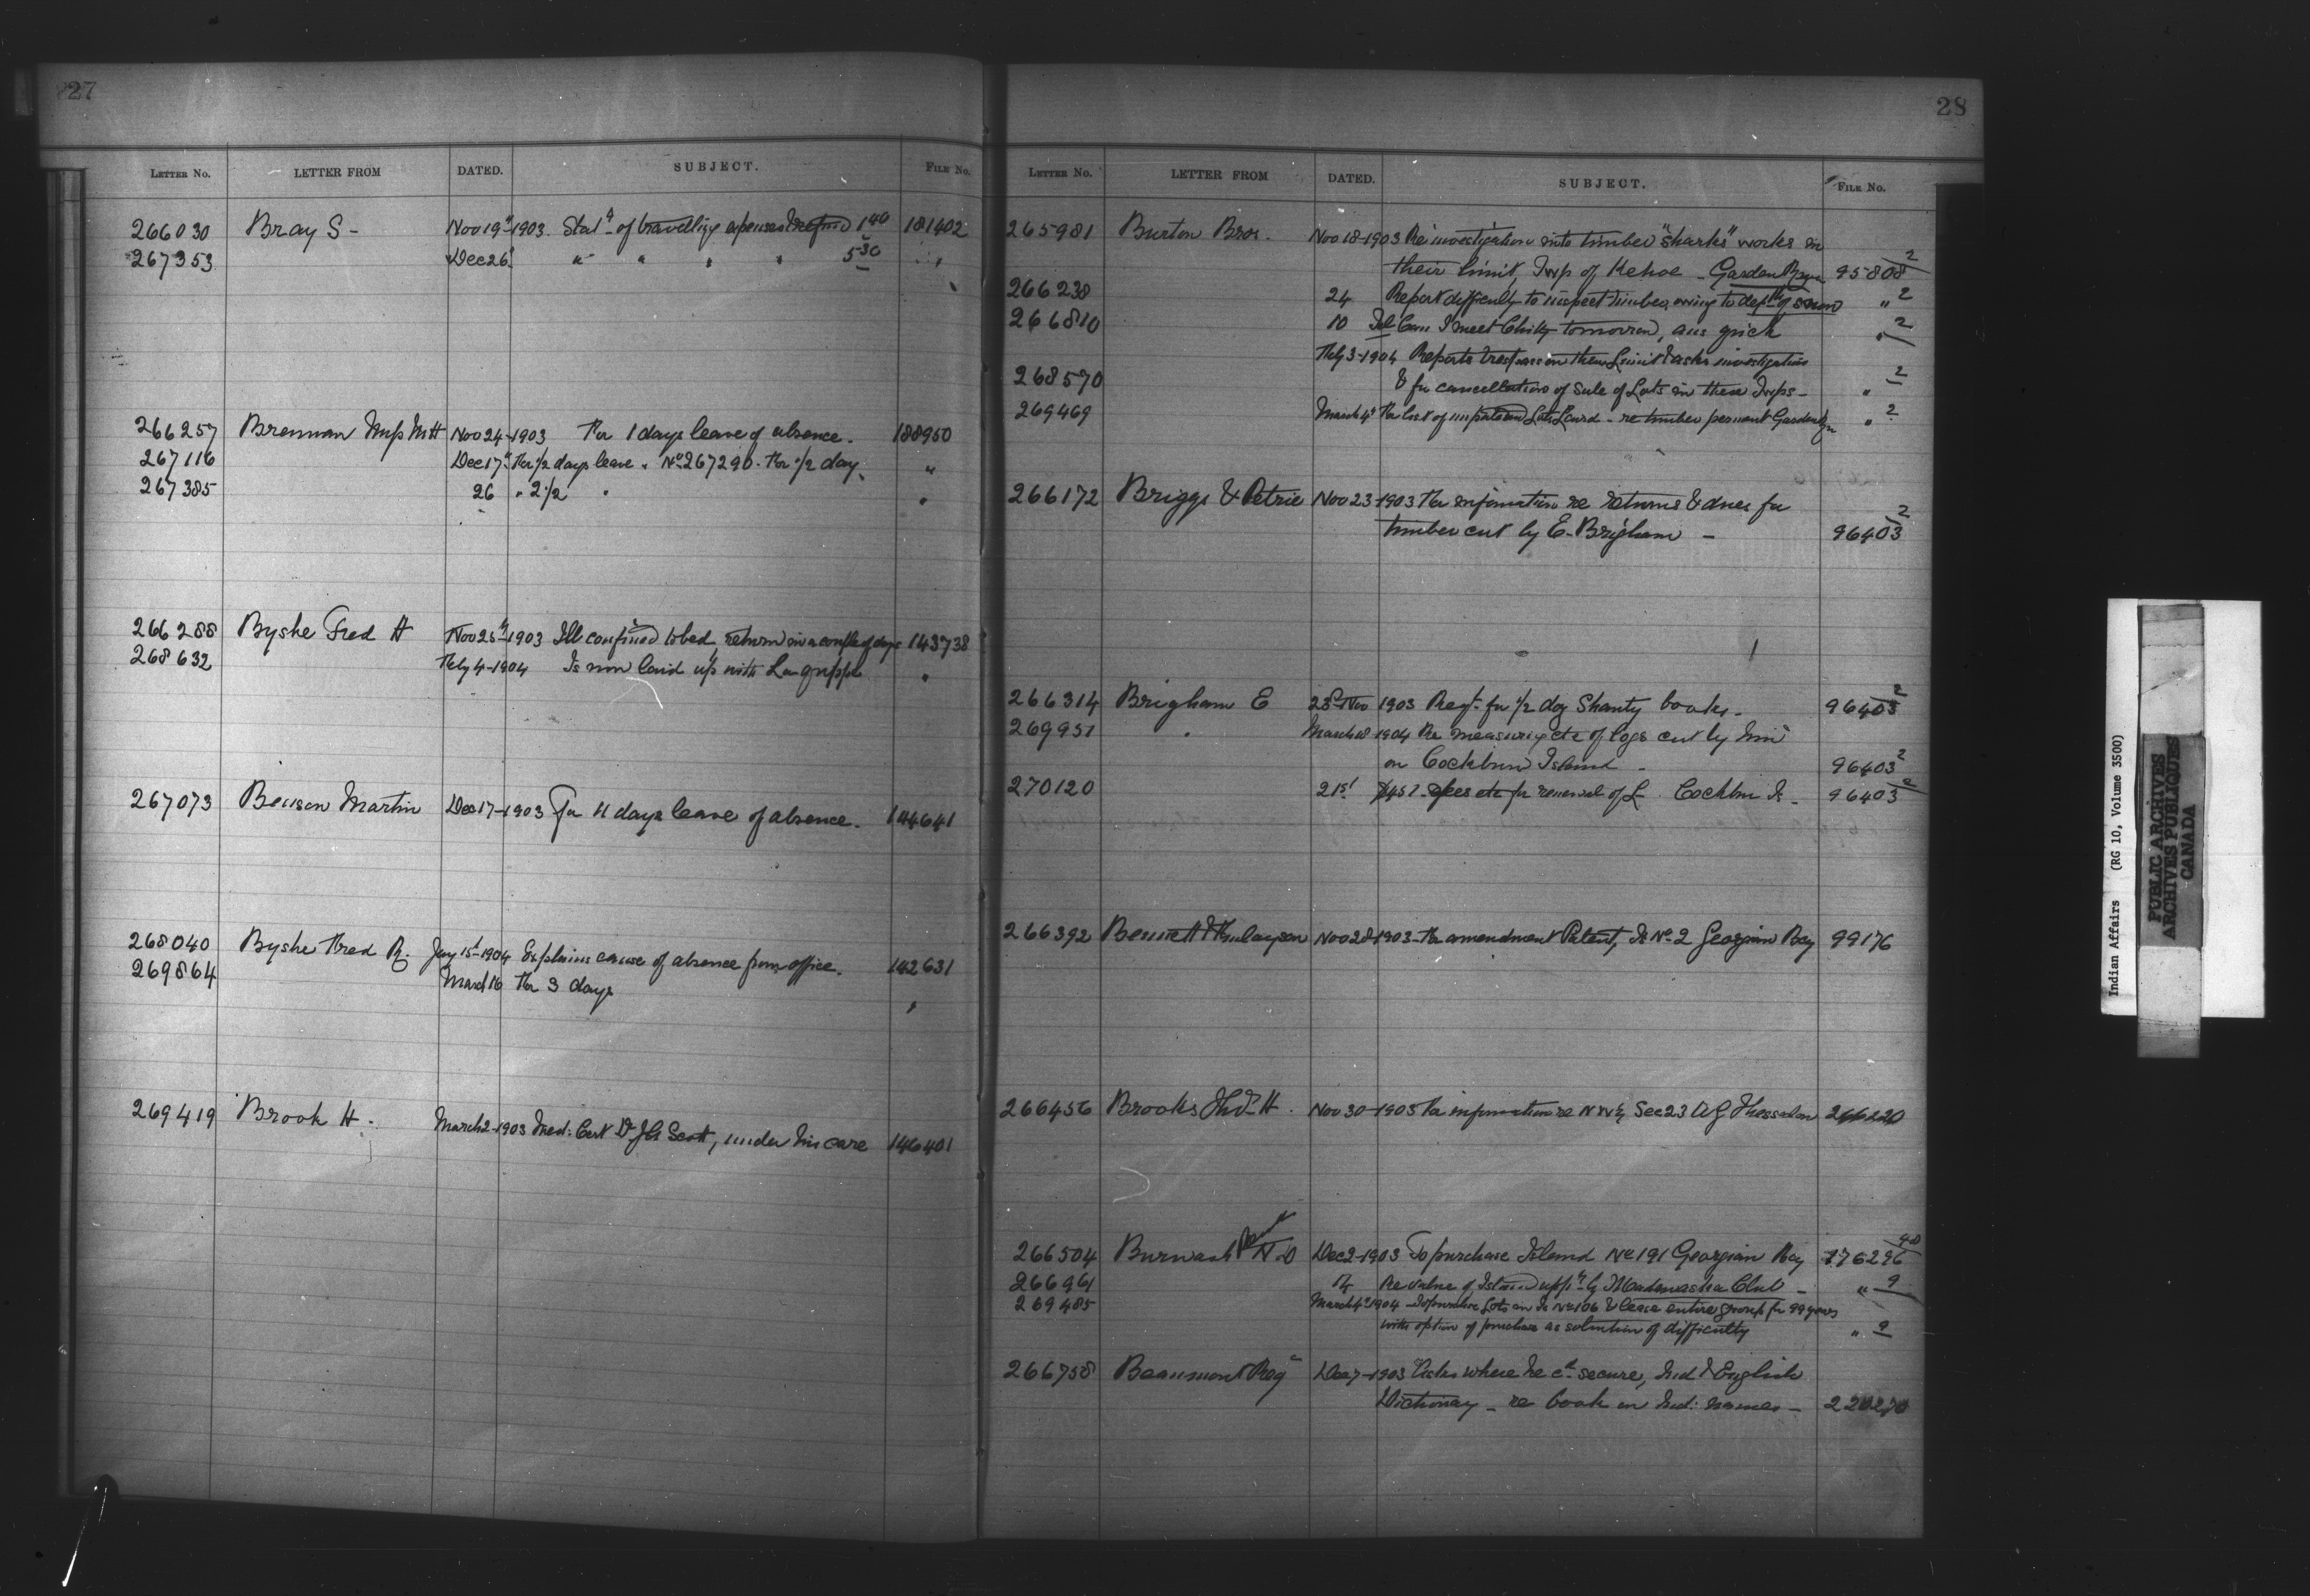 27
LETTER No. LETTER FROM DATED. SUBJECT. FILE No.
266030 Bray S - Nov 19th 1903. Stat of travelling expenses 1 40 181402
267353 Dec 26 " " " " 5 30 "
266257 Brennan Miss M H Nov 24 - 1903 For 1 days leave of absence. 188950
267116 Dec 17th For 1/2 days leave. No 267290. For 1/2 day. "
267385 26 " 2 1/2 " "
266288 Byshe Fred H Nov 25th 1903 Ill confined to bed, return in a couple of days 143738
268632 Feby 4 - 1904 Is now laid up with La grippe "
267073 Benson Martin Dec 17 - 1903 For 11 days leave of absence. 144641
268040 Byshe Fred R. Jany 15 - 1904 Explains cause of absence from office. 142631
269864 March 16 For 3 days "
269419 Brook H. March 2 - 1903 Med: Cert Dr Scott, under his care 146401
28
LETTER No. LETTER FROM DATED. SUBJECT. FILE No.
265981 Burton Bros. Nov 18 - 1903 Re investigation into timber "sharks" works in
their limit, Twp of Kehoe - Garden River 95808 2
266238 24 Report difficulty to inspect timber, owing to depth of snow " 2
266810 10 Tel Can I meet Chitty tomorrow, ans quick " 2
Feby 3 - 1904 Reports trespass on their Limit & asks investigation
268570 & for cancellation of Sale of Lots in these Twps - " 2
269469 March 4th For list of unpatented Lots - re timber permit Garden " 2
266172 Briggs & Petrie Nov 23 - 1903 For information re returns & dues for
timber cut by E. Brigham - 96403 2
266314 Brigham E 28 Nov 1903 Reqt. for 1/2 doz Shanty books - 96403 2
269951 " March 18 - 1904 Re measuring etc of logs cut by him
on Cockburn Island - 96403 2
270120 21st fees etc for renewal of L. Cockburn Is - 96403 2
266392 Bennett & Nov 28 - 1903 - For amendment Patent, Is No 2 Georgian Bay 99176
266456 Brooks H. Nov 30 - 1903 For information re N W 1/4 Sec 23 Thessalon
266504 Burwash Rev N. D Dec 2 - 1903 To purchase Island No 191 Georgian Bay 176296
266961 Re value of Island appn by Madawaska Club - " 9
269485 March 4th 1904 - To purchase Lots on Is No 106 & lease entire group for 99 years
with option of purchase as solution of difficulty " 9
266758 Beaumont Reg Dec 7 - 1903 Asks where he cd secure, Ind & English
Dictionary - re book on Ind: names - 220270
Indian Affairs (RG 10, Volume 3500)
PUBLIC ARCHIVES
ARCHIVES PUBLIQUES
CANADA